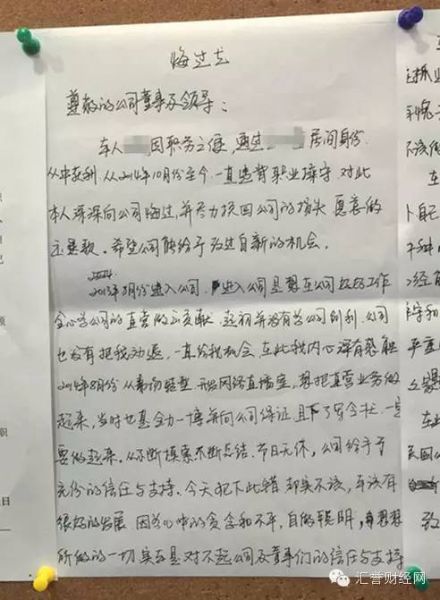 悔过书
尊敬的公司董事及领导：
本人 因职务之便，通过 居间身份
从中获利，从2014年10月份至今，一直违背职业操守，对此
本人深深向公司悔过，并尽力挽回公司的损失，愿意退
还赃款，希望公司能给予改过自新的机会。
2013年8月份进入公司，进入公司是想在公司好好工作
全心为公司的直营做出贡献，起初并没有为公司创利，公司
也没有把我劝退，一直给我机会，在此我内心深有感触
2014年8月份从 转型 开始网络直播室，想把直营业务做
起来，当时也是全力一搏并向公司保证，且下了军令状，一定
要做起来，从不断摸索不断总结，节日无休，公司给予了
充份的信任与支持，今天犯下此错，却实不该，本该有
很好的发展，因为心中的贪念和不平，自做聪明，
所做的一切实在是对不起公司及董事们的信任与支持
汇誉财经网